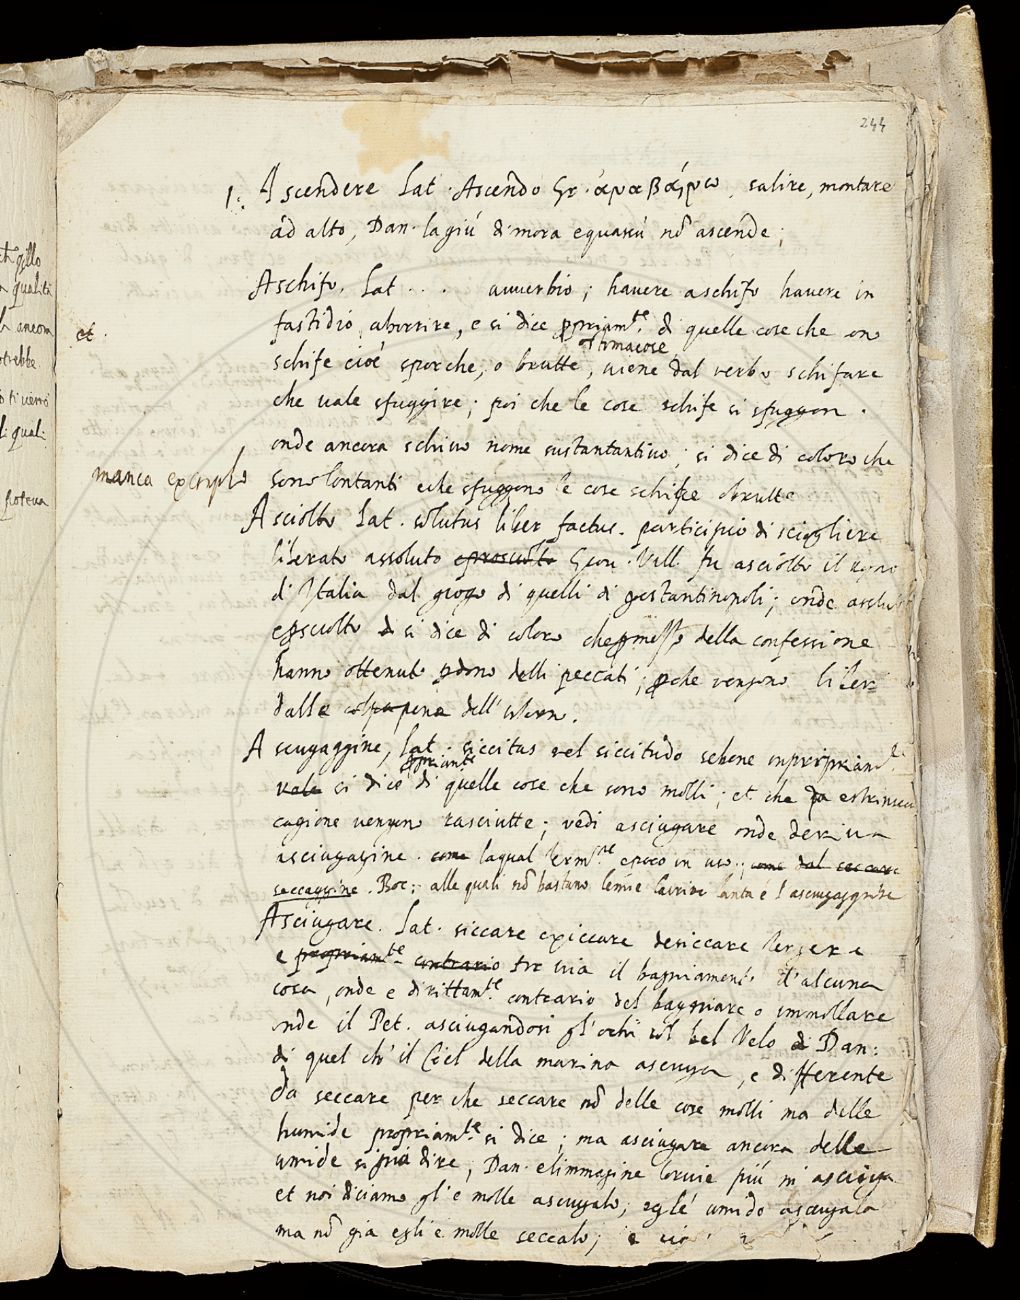 244
1. Ascendere Lat. Ascendo Gr. ἀναβαίνω, salire, montare
ad alto, Dan. lagiú dimora e quassú nõ ascende;
Aschifo. Lat . . . auuerbio; hauere aschifo hauere in
fastidio, aborrire, e si dice ꝓpriamte. di quelle cose che
et.
ostimacose
schife cioé sporche, o brutte, uiene dal verbo schifare
che uale sfuggire; poi che le cose schife si sfuggon.
onde ancora schiuo nome sustantantiuo; si dice di coloro che
manca exemplo
sono lontanti e che sfuggono le cose schife brutte
Asciolto Lat. solutus liber factus. participio di sciogliere
liberato assoluto e prosciolto Giou. Vill. fu asciolto il regno
d'Italia dal giogo di quelli di gostantinopoli; onde
si dice di coloro che della confessione
hanno ottenuto ꝑdono delli peccati; ꝑche vengono liber
dalle colpa pene dell'
Asciugaggine, Lat. siccitas vel siccitudo sebene
ꝓpriamte
vale si dice di quelle cose che sono molli; et che da estrinseca
cagione vengono rasciutte; vedi asciugare onde deriua
asciugagine. come laqual e poco in uso; come dal seccare
seccaggine. Boc: alle quali nõ bastano la e l'asciugaggine
Asciugare. Lat. siccare exiccare desiccare tergere
e propriamte contrario tor uia il bagniamento d'alcuna
cosa, onde e dirittamte. contrario del bagniare o immollare
onde il Pet. asciugandosi gl'ochi col bel Velo Dan:
di quel ch'il Ciel della marina asciuga, e differente
da seccare per che seccare nõ delle cose molli ma delle
humide propriamte. si dice; ma asciugare ancora delle
umide si puó dire, Dan. e l'immagine lor uie piú m'asciuga
et noi diciamo gl'e molle asciugalo; eglé umido asciugalo
ma nõ gia egli e molle seccalo;